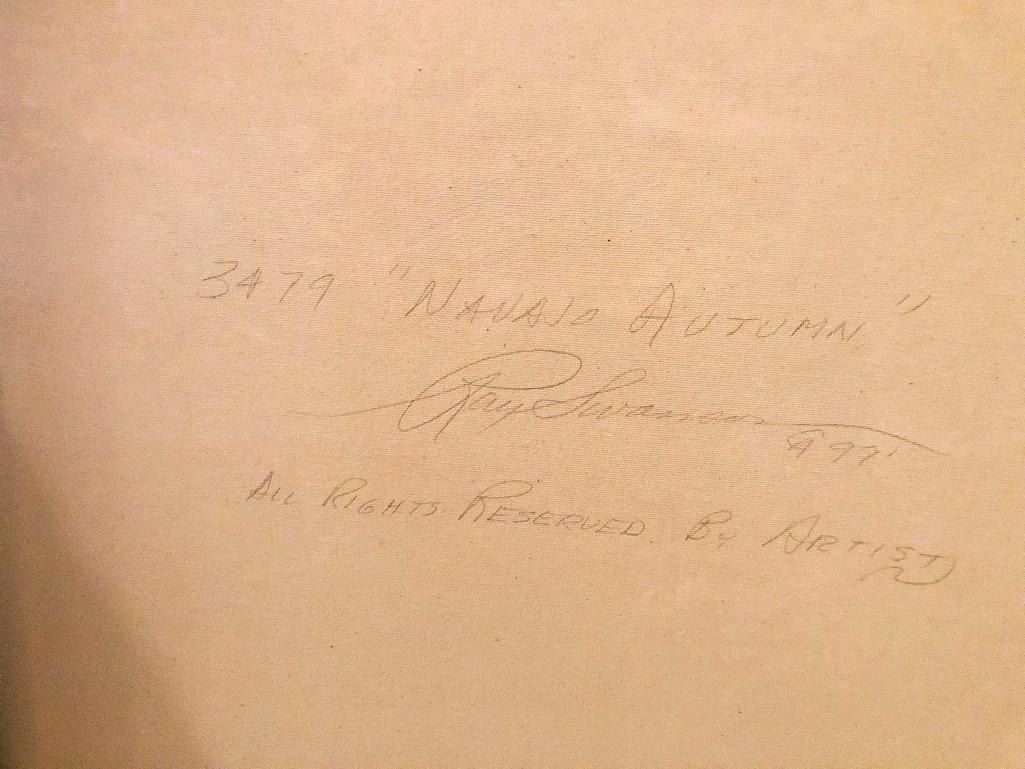 3479 "NAVAJO AUTUMN"
Ray Swanson
© 97'
ALL RIGHTS RESERVED. By ARTIST